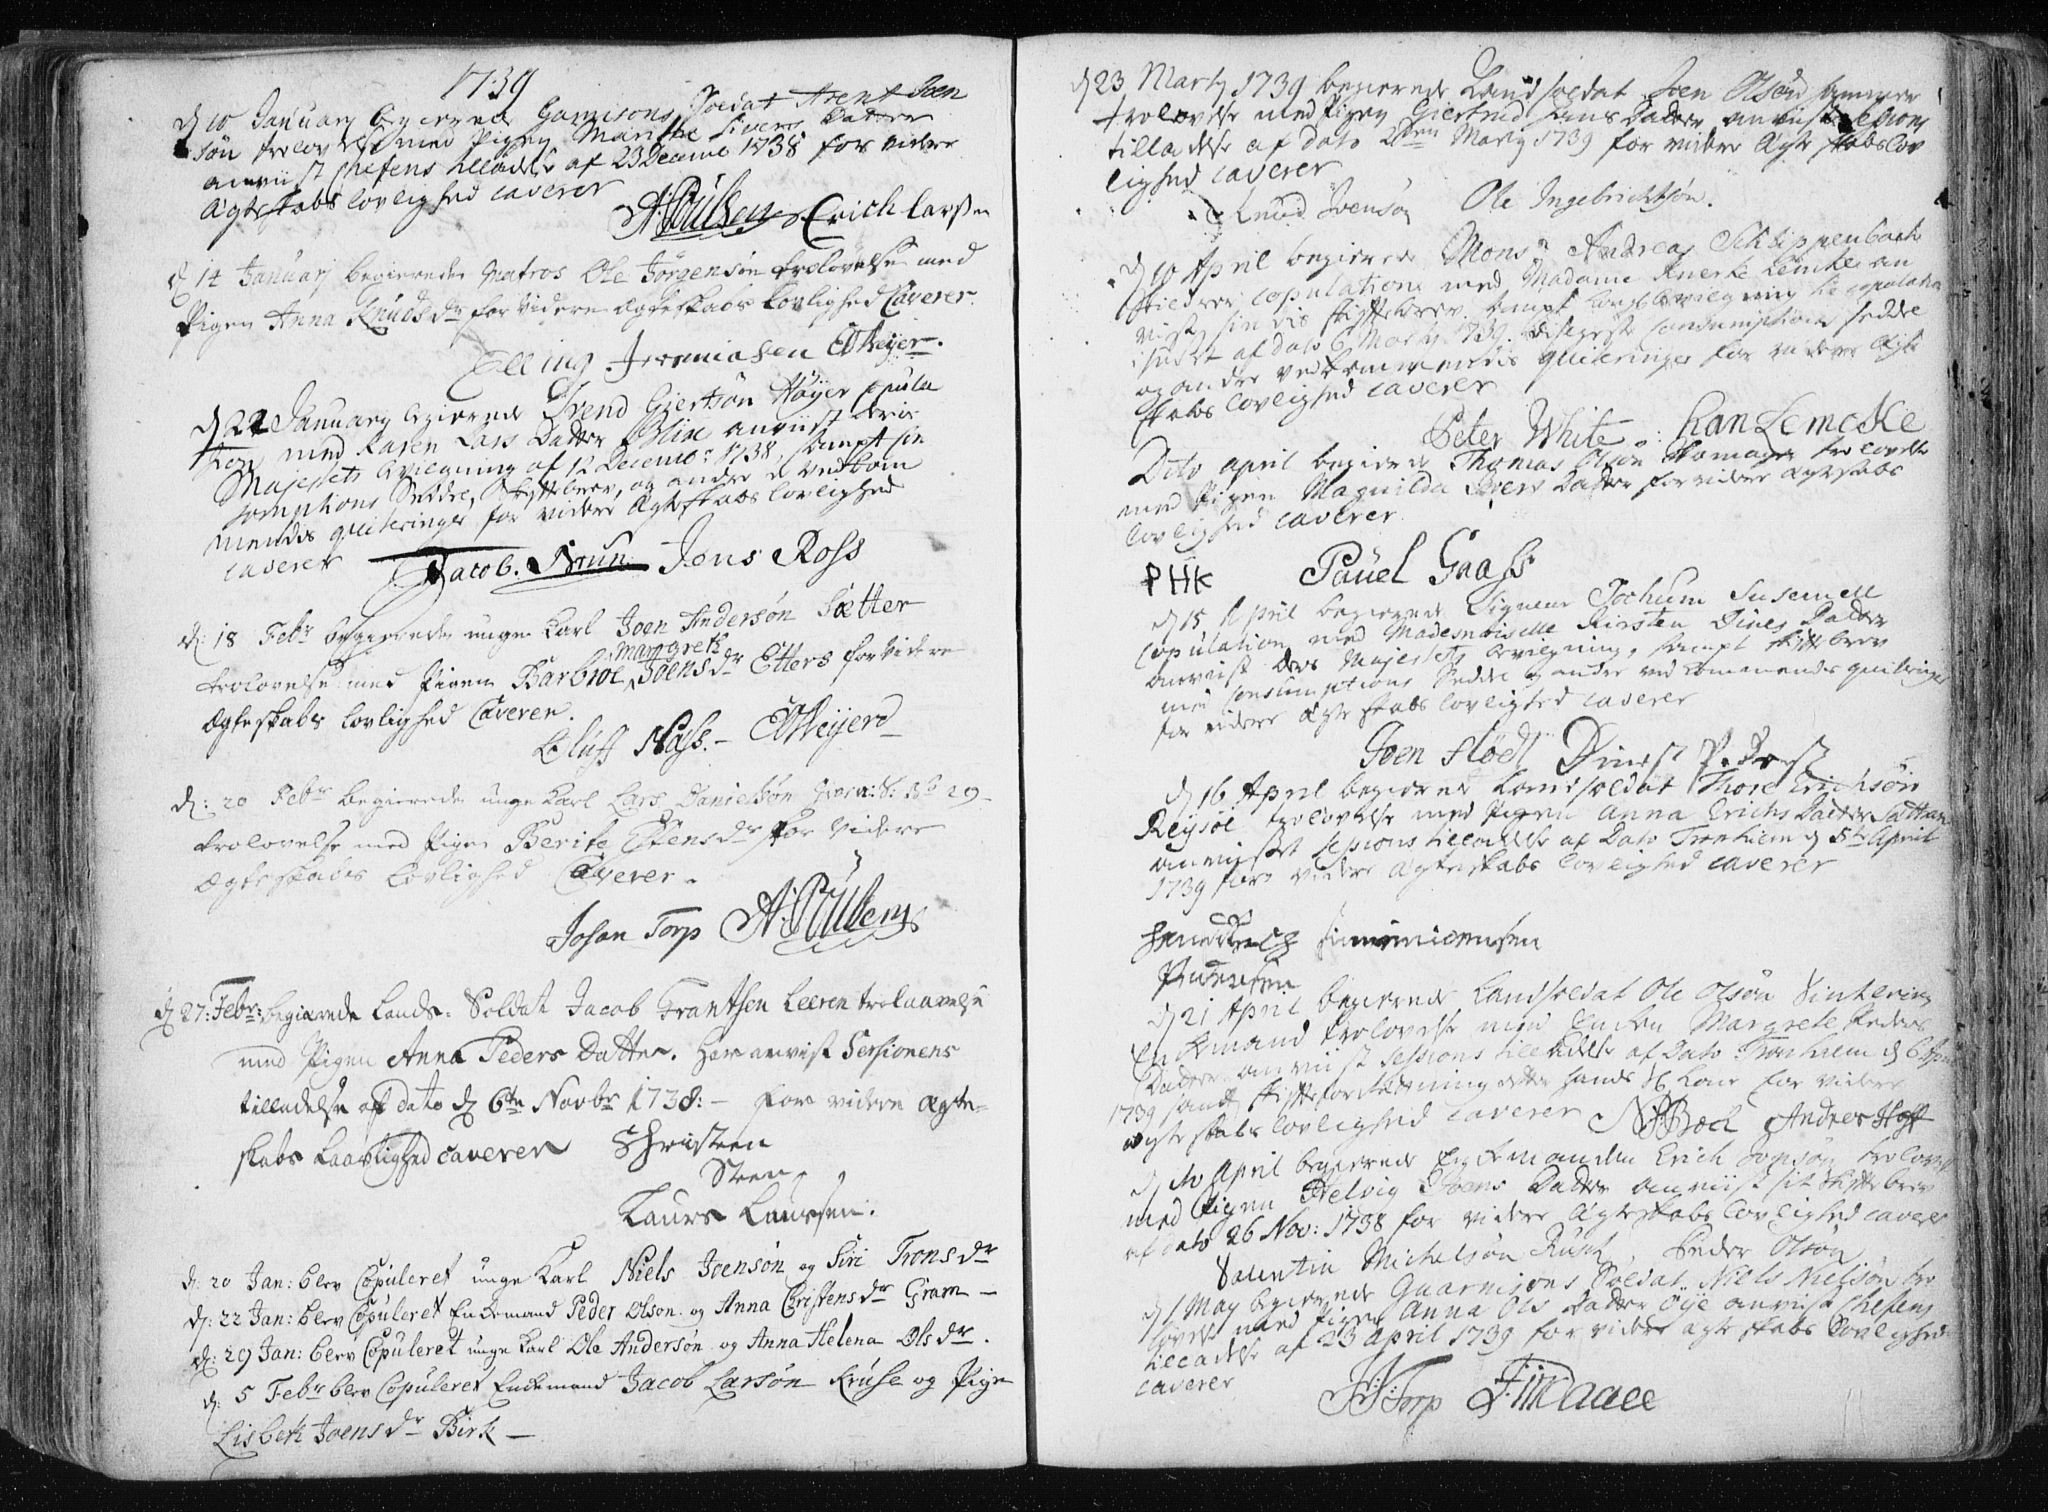 1739
d 10 January begierede Garnisons Soldat Arent Joen
søn trolovelse med Pigen Marithe Sivers Datter
anviist Chefens tilladelse af 23 Decemb 1738 for videre
Ægteskabs lovlighed caverer
A Poulsen Erich larssen
d 14 January begierede Matros Ole Jørgensøn trolovelse med
Pigen Anna Knudsdr for videre ægteskabs Lovlighed Caverer.
Elling Jeremiasen EMeyer.
d 22 January begierede Svend Giertsøn Høyer copula
tion med Karen Lars Datter Blix anviist deris
Majestets bevilgning af 12 Decemb: 1738, sampt con
somptions Seddel, Skiftebrev, og andre vedkom
mendes qviteringer for videre Ægteskabs lovlighed
caverer Jacob. Brun Jens Ross
d: 18 Febr begierede unge Karl Joen Andersøn Sætter
Margreth
trolovelse med Pigen Barbroe Joensdr Etters for videre
Ægteskabs lovlighed Caverer.
Oluff Nass. – EMeyer
d: 20 Febr begierede unge Karl Lars Danielsøn No 29
trolovelse med Pigen Berite Estensdr for videre
Ægteskabs Lovlighed Caverer.
Johan Torp A. Poulsen
d 27: Febr: begierede Lands: Soldat Jacob Frantsen Leeren trolaavelse
med Pigen Anna Peders Datter. Har anvist Sessionens
tilladelse af dato d 6te Novbr 1738: – for videre ægte-
skabs Laavlighed caverer Christen
Steen
Laurs Laurssen.
d: 20 Jan: blev Copuleret unge Karl Niels Joensøn og Siri Tronsdr
d: 22 Jan: blev Copuleret Enkemand Peder Olson og Anna Christensdr Gram –
d: 29 Jan: blev Copuleret unge Karl Ole Andersøn og Anna Helena Olsdr.
d: 5 Febr blev Copuleret Enkemand Jacob Larsøn Kruse og Pige
Lisbeth Joensdr Birk –
d 23 Marty 1739 begierede Landsoldat Joen Olsøn
trolovelse med Pigen Giertrud Hans Datter anviist sessions
tilladelse af dato Marty 1739 for videre Ægteskabs lov
lighed caverer
Knud Svensøn Ole Ingebrichtsøn.
d 10 April begierede Monsr Andreas Schlippenbach
copulation med Madame Lemke an
viist sin skifftebrev sampt Kongl bevilgning til copulation
af dato 6 Marty 1739. Consumptions seddel
og andre vedkommendes qviteringer for videre Ægte
skabs lovlighed caverer
Peter White. Han Lemcke
Dito April begierede Thomas Olsøn trolovelse
med Pigen Magnilda Sivers Datter for videre Ægteskabs
lovlighed caverer
PHK Pauel Gaass
d 15 April begierede Signeur Jochum Susemell
copulation med Mademoiselle Kirsten Dines Datter
anviist Deris Majestets bevilgning, sampt skiftebrev
med Consumptions Seddel og andre vedkommendes qviteringer
for videre Ægteskabs lovlighed caverer
Joen Flödt Dines P.
d 16 April begierede Landsoldat Thore Erichsøn
Reysøe trolovelse med Pigen Anna Erichs Datter
anviist sessions tilladelse af Dato Tronhiem d 5te April
1739 for videre Ægteskabs lovlighed caverer
Pedersen
d 21 April begierede Landsoldat Ole Olsøn Vintering
Enkemand trolovelse med Enken Margrete Peders
Datter anviist sessions tilladelse af Dato Tronhiem d 6 April
1739 samt skiffteforretning efter hands S. Kone for videre
ægteskabs lovlighed caverer N. Bech Andres Hoff
d April begierede Enkemanden Erich trolovelse
med Pigen Helvig Joens Datter anviist sit skiftebrev
af dato 26 Nov: 1738 for videre Ægteskabs lovlighed caverer
Valentin Michelsøn Rusk Peder Olsøn
d 1 May begierede Guarnisons Soldat Niels Nielsøn tro
lovelse med Pigen Anna Ols Datter Øye anviist Chefens
tilladelse af 23 April 1739 for videre ægteskabs Lovlighed
caverer
Torp